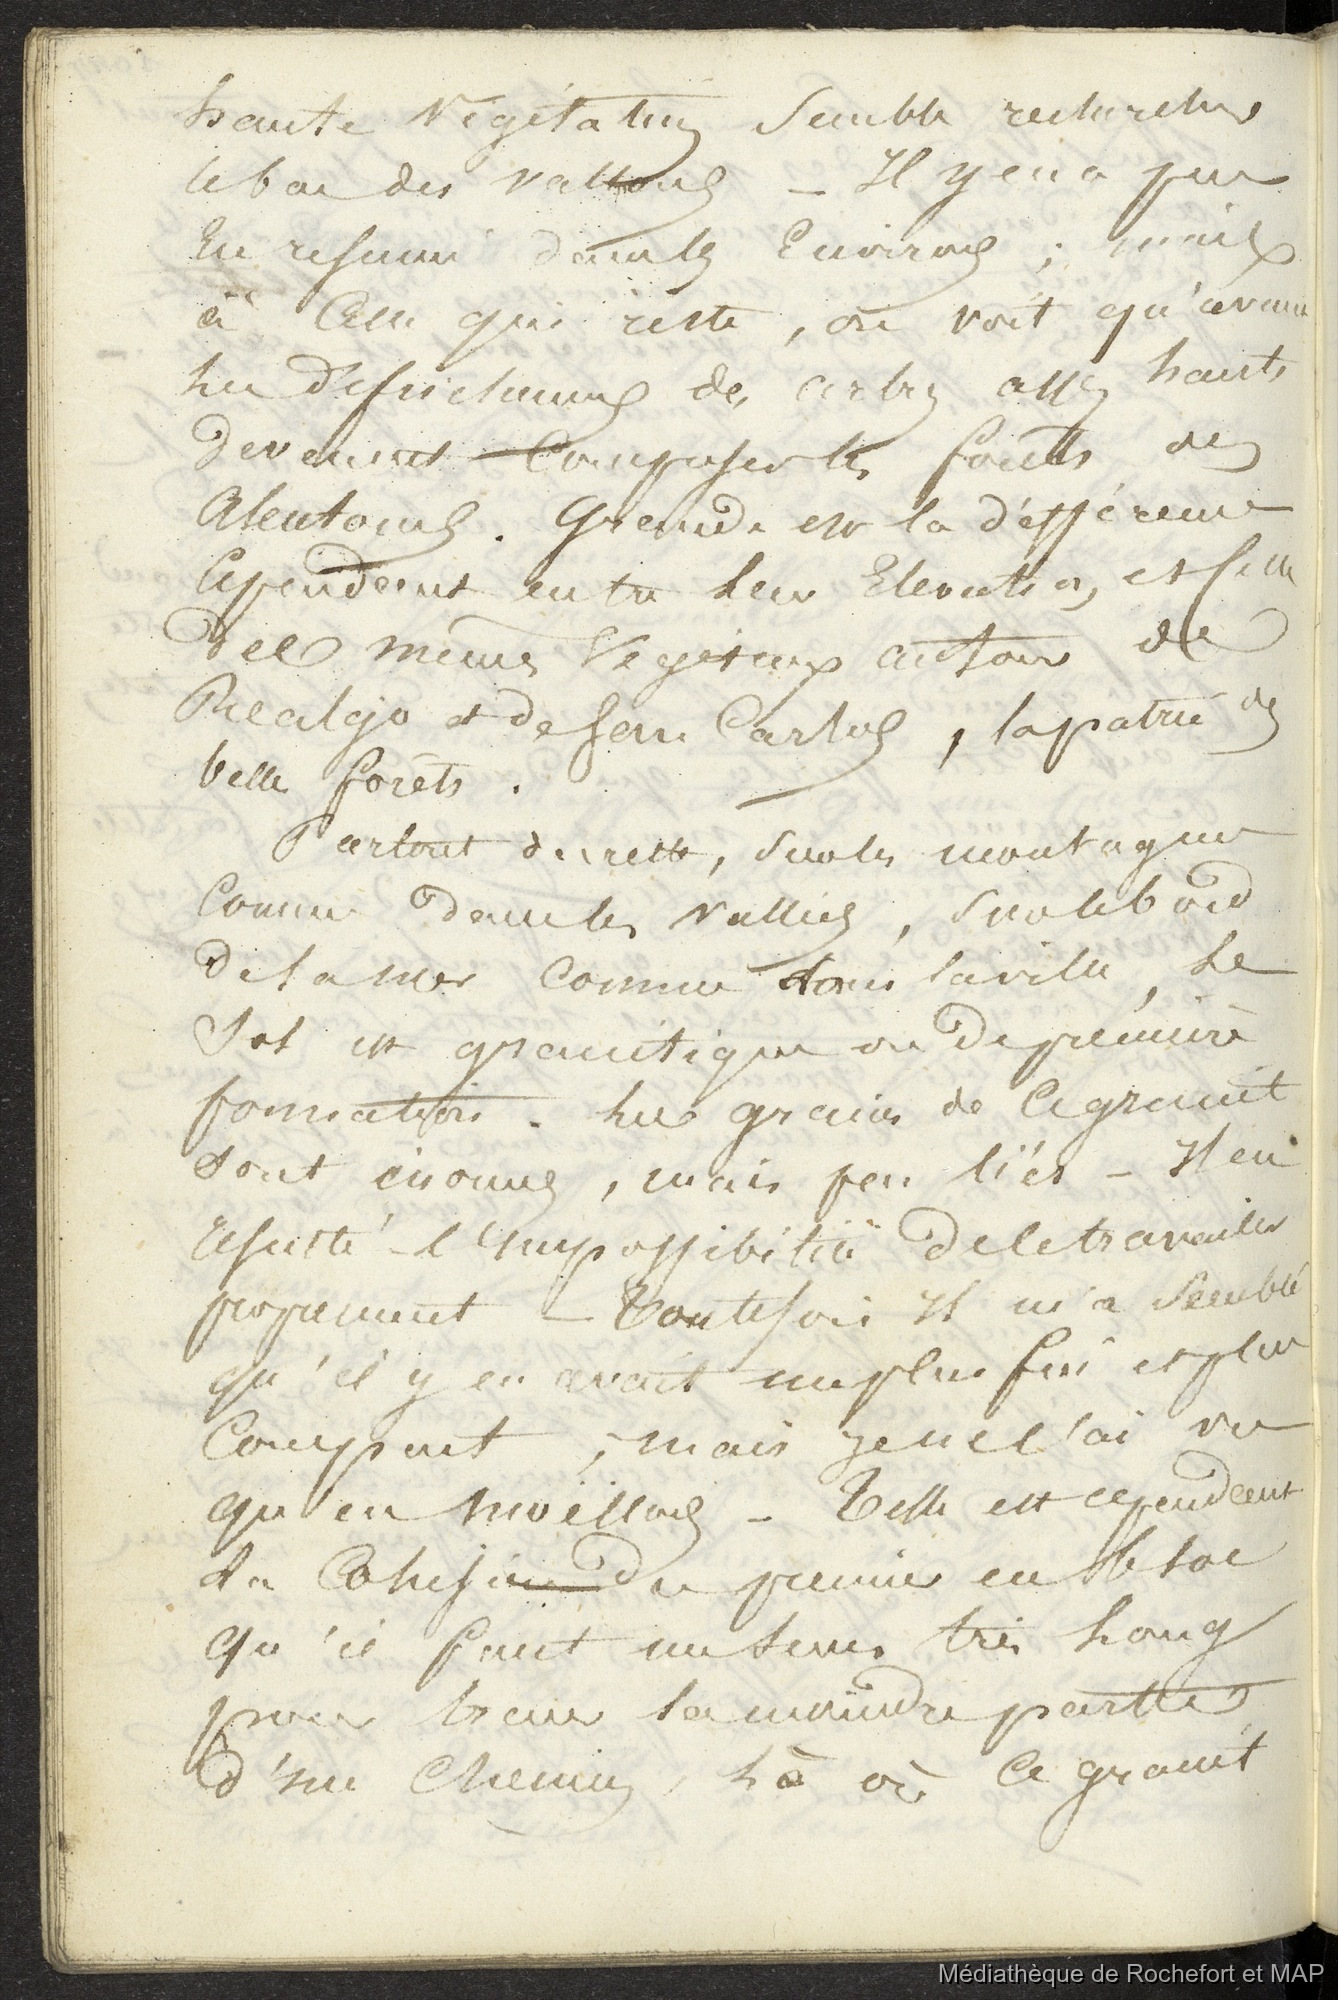 haute végétation semble rechercher
le bas des vallons _ Il y en a peu
En résumé dans les Environs ; mais
à Celle qui reste , on voit qu'avant
les défrichemens des arbres assez hauts
devaient Composer les forêts des
Alentours . Grande est la différence
Cependant entre leur Elevation, et celle
des mêmes Végétaux autour de
Realejo et de San Carlos , la patrie des
belles forêts .
Partout du reste, sur les montagnes
Comme dans les vallées , sur le bord
de la mer Comme dans la ville , le
Sol est granitique ou de première
formation . Les grains de Ce granit
sont énormes , mais peu liés _ Il en
résulte l'impossibilité de le travailler
proprement _ Toutefois Il m'a semblé
qu'il y en avait un plus fin et plus
Compact ; mais je ne l'ai vu
qu'en moëllons _ Telle est cependant
la Cohésion du premier en bloc
qu'il faut un tems très long
pour tracer la moindre partie
d'un Chemin , là où Ce granit
Médiathèque de Rochefort et MAP